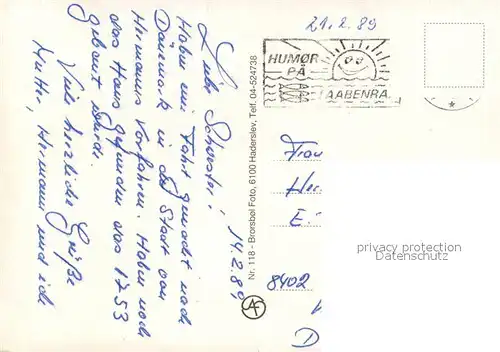 Liebe Schwester! 14.2.89
Haben eine Fahrt gemacht nach
Dänemark in die Stadt von
Hermanns Vorfahren. Haben noch
das Haus gefunden das 1753
gebaut wurde.
Viele herzliche Grüße
Mutter, Hermann und ich
Nr. 118 - Biorsbøl Foto, 6100 Haderslev, Telf. 04-524738
21.2.89
HUMØR
PÅ
AABENRA
Frau
Her
E.
8402
D
privacy protection
DANSKMALL.com